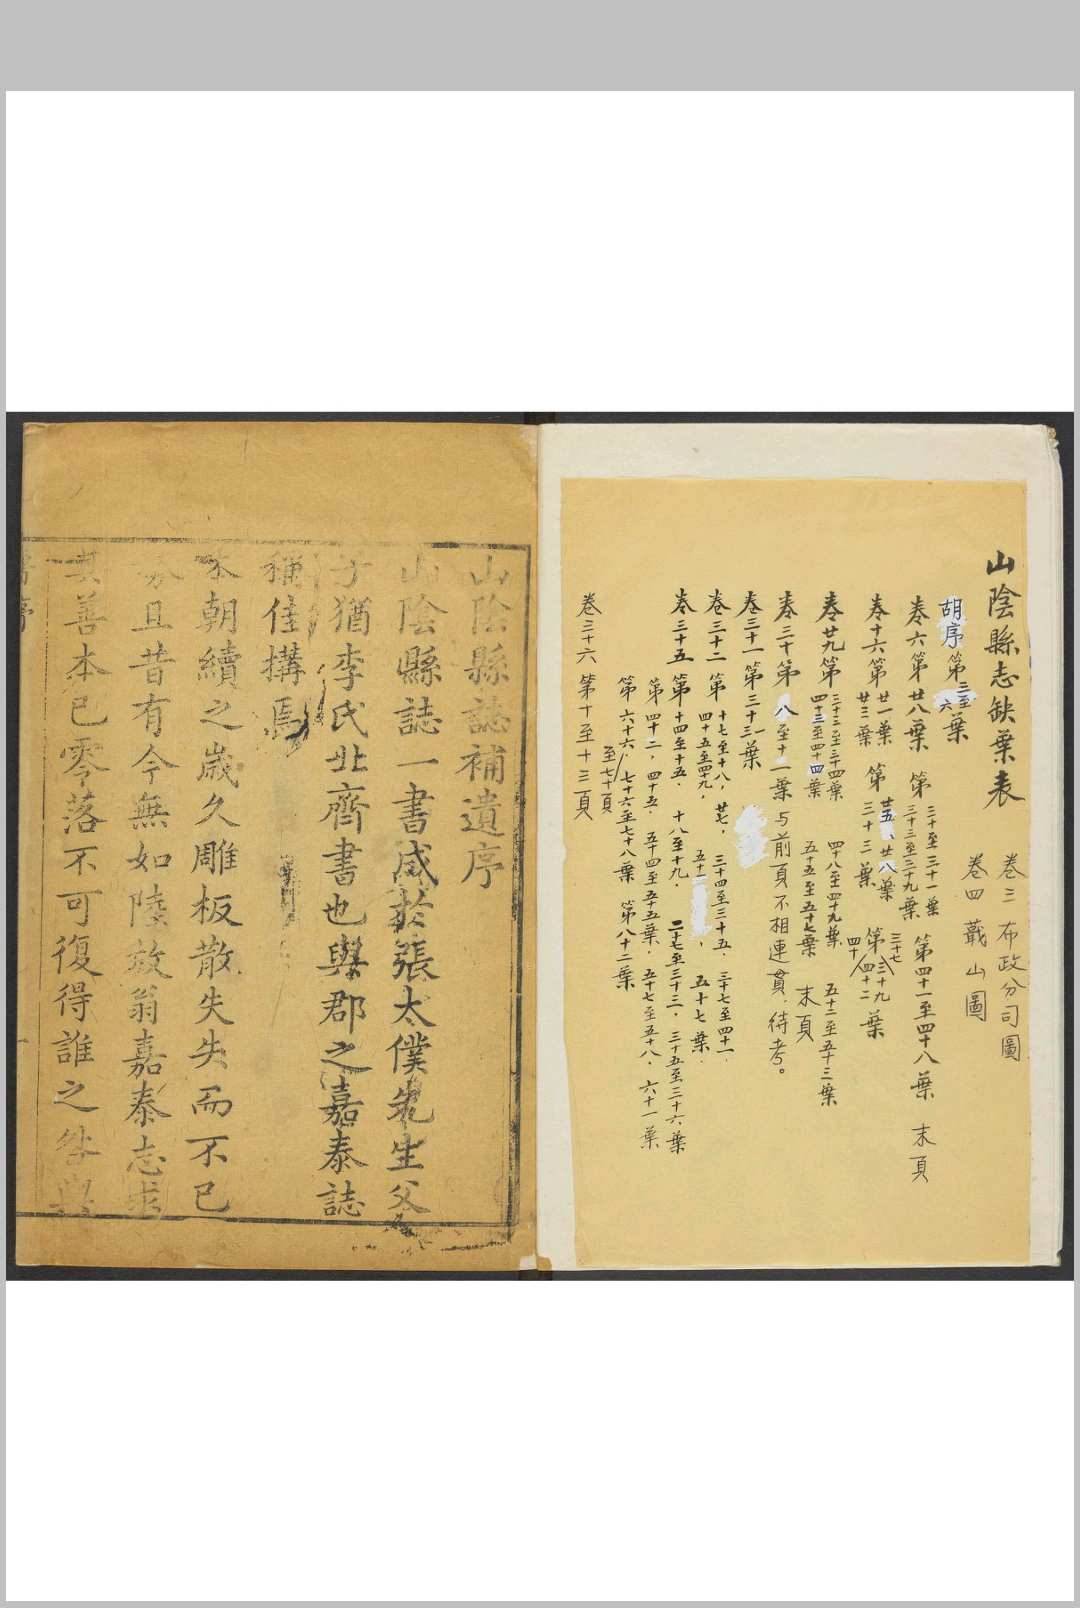 山陰縣志缺葉表
卷三 布政分司圖
卷四 蕺山圖
胡序第二至六葉
卷六第廿八葉 第三十至三十一葉 三十三至三十九葉 第四十一至四十八葉 末頁
卷十六第廿一葉 廿三葉 第廿五、廿八葉 三十三葉 第三十七 三十九 四十 四十二葉
卷廿九第三十二至三十四葉 四十三至四十四葉 四十八至四十九葉 五十五至五十七葉 五十二至五十三葉 末頁
卷三十第八至十二葉与前頁不相連貫,待考。
卷三十一第三十三葉
卷三十二第十七至十八, 廿七, 三十四至三十五, 三十七至四十一, 四十五至四十九, 五十一, 五十七葉.
卷三十五第十四至十五, 十八至十九, 二十七至三十三, 三十五至三十六葉
第四十二, 四十五, 五十四至五十五葉, 五十七至五十八, 六十一葉
第六十六, 至七十頁 七十六至七十八葉 第八十二葉
卷三十六第十至十三頁
山陰縣誌補遺序
山陰縣誌一書成於張太僕先生父
子猶李氏北齊書也與郡之嘉泰誌
稱佳搆焉
本朝續之歲久雕板散失失而不已
且昔有今無如陸放翁嘉泰志求
其善本已零落不可復得誰之咎與